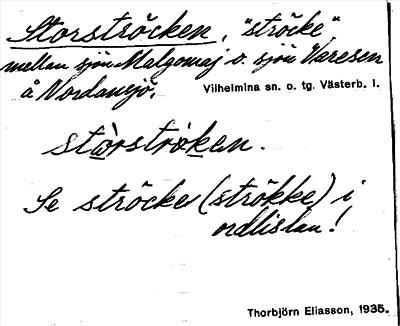 Storströcken, "ströcke"
mellan sjön Malgomaj o. sjön Varesen
å Nordansjö. Vilhelmina sn. o. tg. Västerb. l.
stòrströ̀ken.
Se ströcke (strökke) i
ordlistan!
Thorbjörn Eliasson, 1935.